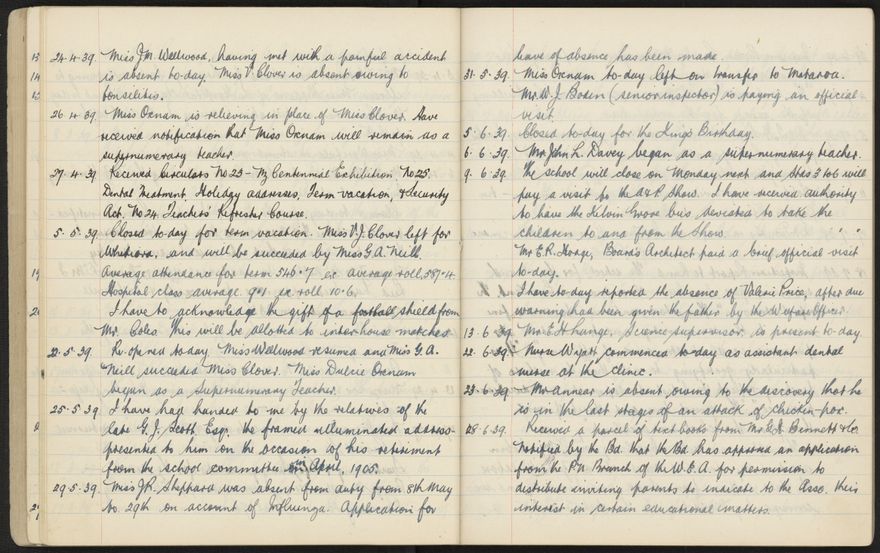 24.4.39. Miss J.M. Wellwood, having met with a painful accident
is absent to-day. Miss V. Clover is absent owing to
tonselitis.
26.4.39 Miss Oxnam is relieving in place of Miss Clover. Have
received notification that Miss Oxnam will remain as a
supernumerary teacher.
27.4.39 Received Circulars No 23 - N Centennial Exhibition No 25.
Dental Treatment, Holiday addresses, Term vacation, & Security
Act. No 24 Teachers' Refresher Course.
5.5.39. Closed to day for term vacation. Miss V.J. Clover left for
and will be succeeded by Miss G.A. Neill.
Average attendance for term 546.7 ex average roll, 587.4.
Hospital class average 9.1 ex roll 10.6.
I have to acknowledge the gift of a football shield from
Mr. Coles This will be allotted to inter house matches.
22.5.39. Re-opened to-day. Miss Wellwood resumed and Miss G. A.
Neill succeeded Miss Clover. Miss Dulcie Oxnam
began as a Supernumerary Teacher.
25.5.39. I have had handed to me by the relatives of the
late G.J. Scott Esq. the framed illuminated address
presented to him on the occasion of his retirement
from the school committee in April, 1905.
29.5.39. Miss J.R. Sheppard was absent from duty from 8th May
to 29th on account of Influenza. Application for
leave of absence has been made.
31.5.39. Miss Oxnam to-day left on transfer to Mataroa.
Mr. W.J. Boden (senior inspector) is paying an official
visit.
5.6.39. Closed to-day for the King's Birthday.
6.6.39. Mr. John L. Davey began as a supernumerary teacher.
9.6.39. The school will close on Monday next and Stds 3 to 6 will
pay a visit to the A & P. Show. I have received authority
to have the Kelvin Grove bus deviated to take the
children to and from the Show.
Mr E.R. Board's Architect paid a brief official visit
to-day.
I have to-day reported the absence of Valerie Price, after due
warning has been given the father by the Welfare Officer.
13.6.39 Mr. E.H. Lange, Science supervisor is present to day.
22.6.39. Nurse Wyatt commenced to-day as assistant dental
nurse at the clinic.
23.6.39 Mr Annear is absent owing to the discovery that he
is in the last stages of an attack of chicken-pox.
28.6.39. Received a parcel of text books from Mr. G.H. Bennett & Co.
Notified by the Bd. that the Bd. has approved an application
from the P.N. Branch of the W.E.A. for permission to
distribute inviting parents to indicate to the Asso. their
interest in certain educational matters.